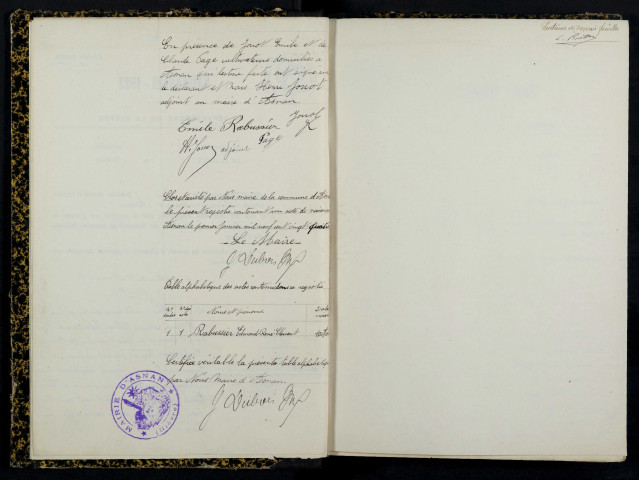 En présence de Jouot Emile et de
Claude Page cultivateurs domiciliés à
Asnan qui lecture faite ont signé avec
le déclarant et Nous Henri Jouot
adjoint au maire d'Asnan
Emile Rabussier Jouot
H. Jouot adjoint Page
Clos et arrêté par Nous maire de la commune d'Asnan
le présent registre contenant un acte de naissance
Asnan le premier janvier mil neuf cent vingt quatre
Le Maire
Table alphabétique des actes contenus dans ce registre
Noms et prénoms
1 1 Rabussier Edmond René Clément
Certifiée véritable la présente table alphabétique
par Nous Maire d'Asnan
MAIRIE D'ASNAN
(NIÈVRE)
feuillet